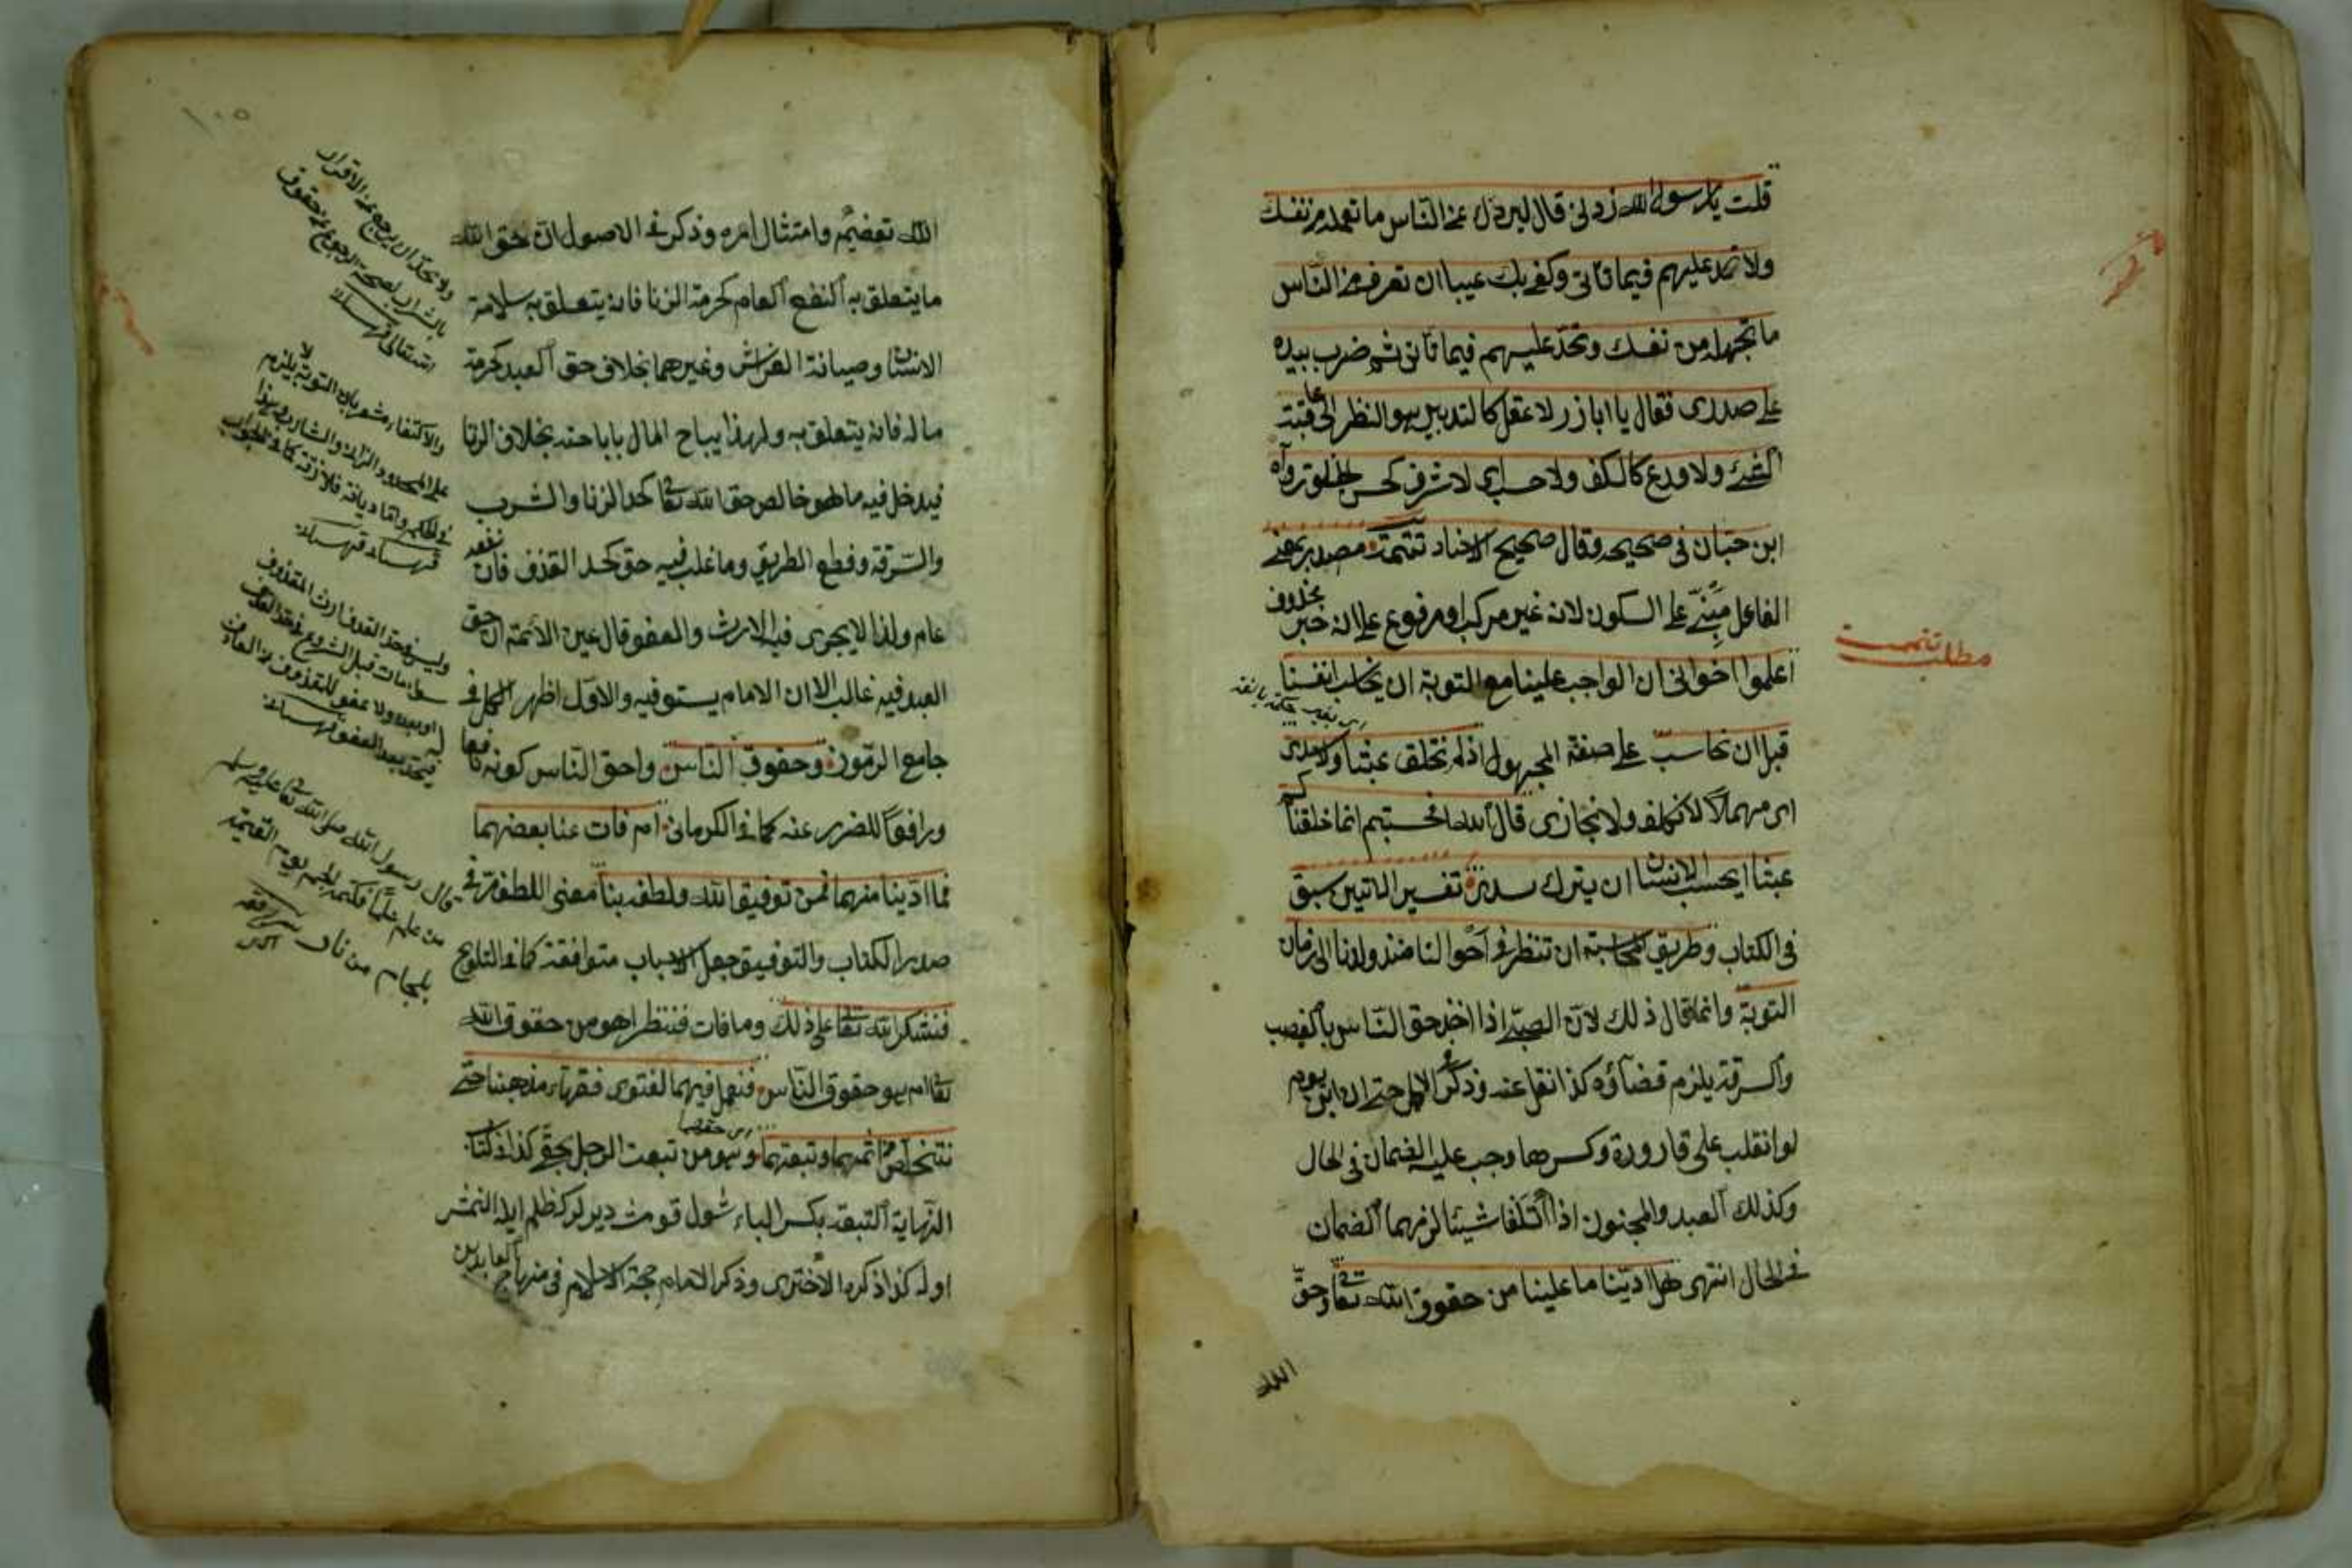 قلت يا رسول الله زدنى قال ليردك عن الناس ما تعلمه من نفسك
ولا تجد عليهم فيما تأتى وكفى بك عيبا ان تعرف من الناس
ما تجهله من نفسك وتجد عليهم فيما تأتى ثم ضرب بيده
على صدرى فقال يا اباذر لا عقل كالتدبير هو النظر الى عاقبته
الشئ ولا ورع كالكف ولا حسب اى لا شرف كحسن الخلق رواه
ابن حبان فى صحيحه وقال صحيح الاسناد تتمت مصدر بمعنى
الفاعل مبنى على السكون لانه غير مركب او مرفوع على انه خبر محذوف
اعلموا اخوانى ان الواجب علينا مع التوبة ان نحاسب انفسنا
قبل ان نحاسب على صيغة المجهول اذ لم نخلق عبثا ولا سدى
اى مهملا لا نكلف ولا نجازى قال الله افحسبتم انما خلقناكم
عبثا ايحسب الانسان ان يترك سدى تفسير الآتين سبق
فى الكتاب وطريق المحاسبة ان تنظر فى احوالنا منذ ولدنا الى زمان
التوبة وانما قال ذلك لان الصبى اذا اخذ حق الناس بالغصب
والسرقة يلزم قضاؤه كذا نقل عنه وذكر فى الاكمل حتى ان ابن يوم
لو انقلب على قارورة وكسرها وجب عليه الضمان فى الحال
وكذلك العبد والمجنون اذا اتلفا شيئا لزمهما الضمان
فى الحال انتهى هل ادّينا ما علينا من حقوق الله تعالى وحق
الله
مطلب تتمت
الله تعضيم وامتثال امره وذكر فى الاصول ان حق الله
ما يتعلق به النفع العام كحرمة الزنا فانه يتعلق به سلامة
الانسان وصيانة الفراش وغيرهما بخلاف حق العبد كحرمة
ماله فانه يتعلق به ولهذا يباح المال باباحته بخلاف الزنا
فيدخل فيه ما هو خالص حق الله تعالى كحد الزنا والشرب
والسرقة وقطع الطريق وما غلب فيه حق كحد القذف فان نفعه
عام ولذا لا يجرى فيه الارث والعفو وقال عين الائمة ان حق
العبد فيه غالب الا ان الامام يستوفيه والاول اظهر الكل فى
جامع الرموز وحقوق الناس واحق الناس كونه نافعا
ورافعا للضرر عنه كما فى الكرمانى ام فات عنا بعضهما
فما ادينا منهما فمن توفيق الله ولطفه بنا معنى اللطف مر فى
صدر الكتاب والتوفيق جعل الاسباب متوافقة كما فى التلويح
فنشكر الله تعالى على ذلك وما فات فننظر اهو من حقوق الله
تعالى ام هو حقوق الناس فنعمل فيهما لفتوى فقهاء مذهبنا حتى
نتخلص من اثمهما وتبعتهما وهو من تبعت الرجل بحقى كذا ذكر فى
النهاية التبعة بكسر الباء شول قومث ديرلر كه ظلم ايله النمش
اوله كذا ذكره الاخترى وذكر الامام حجة الاسلام فى منهاج العابدين
١٠٥
ولا يحد ان يرجع عن الاقرار
بالشرب لصحة الرجوع عن حقوق
الله تعالى قهستانى
والاكتفاء مشعر بان التوبة لا يلزم
على المحدود والزانى والشارب وهذا
فى الحكم واما ديانة فلازمة كما فى الجواهر
قهستانى
وليس فى حد القذف ارث المقذوف
سواء مات قبل الشروع فى حد القذف
او بعده ولا عفو للمقذوف عن القاذف
فيحد بعد العفو قهستانى
قال رسول الله صلى الله تعالى عليه وسلم
من علم علما فكتمه الجم يوم القيمة
بلجام من نار